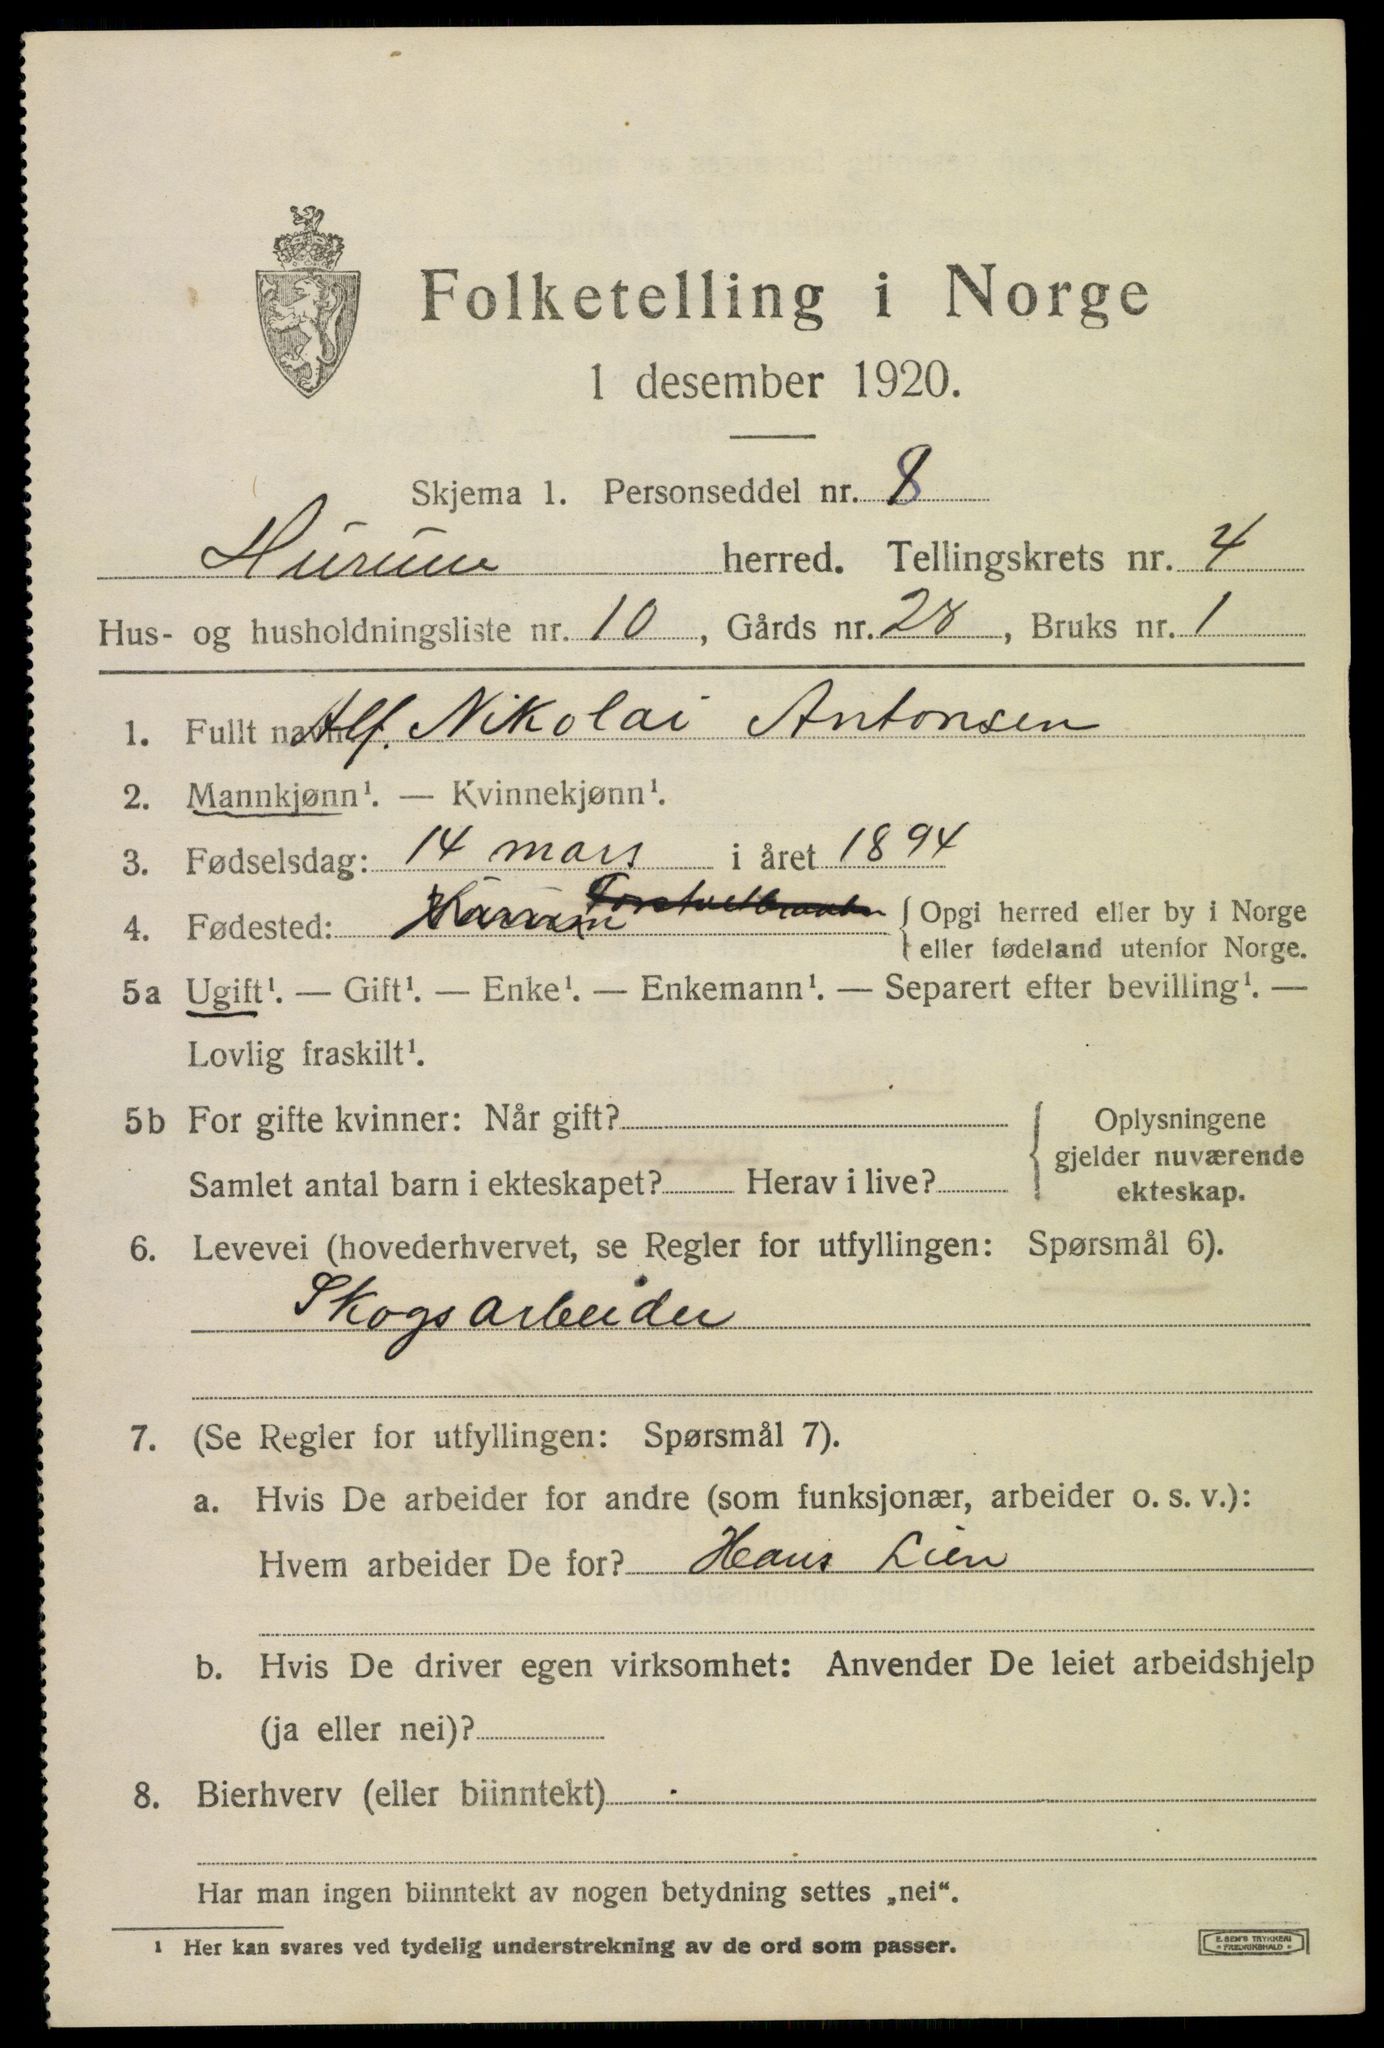 Folketelling i Norge
1 desember 1920.
Skjema 1. Personseddel nr. 8
Hurum herred. Tellingskrets nr. 4
Hus- og husholdningsliste nr. 10, Gårds nr. 28, Bruks nr. 1
1. Fullt navn: Alf. Nikolai Antonsen
2. Mannkjønn¹. — Kvinnekjønn¹.
3. Fødselsdag: 14 mars i året 1894
4. Fødested: Hurum { Opgi herred eller by i Norge
eller fødeland utenfor Norge.
5a Ugift¹. — Gift¹. — Enke¹. — Enkemann¹. — Separert efter bevilling¹. —
Lovlig fraskilt¹.
5b For gifte kvinner: Når gift? { Oplysningene
gjelder nuværende
Samlet antal barn i ekteskapet? Herav i live? ekteskap.
6. Levevei (hovederhvervet, se Regler for utfyllingen: Spørsmål 6).
Skogsarbeider
7. (Se Regler for utfyllingen: Spørsmål 7).
a. Hvis De arbeider for andre (som funksjonær, arbeider o. s. v.):
Hvem arbeider De for? Hans Lien
b. Hvis De driver egen virksomhet: Anvender De leiet arbeidshjelp
(ja eller nei)?
8. Bierhverv (eller biinntekt)
Har man ingen biinntekt av nogen betydning settes „nei“.
¹ Her kan svares ved tydelig understrekning av de ord som passer.
E. SEM'S TRYKKERI
• FREDRIKSHALD •